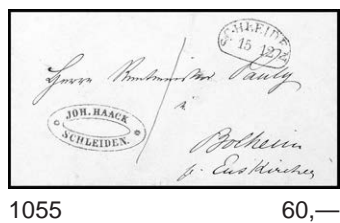 SCHLEIDEN
15 12
Herrn Rentmeister Pauly
JOH. HAACK
SCHLEIDEN.
in
Bolheim
p. Euskirchen
1055 60,—